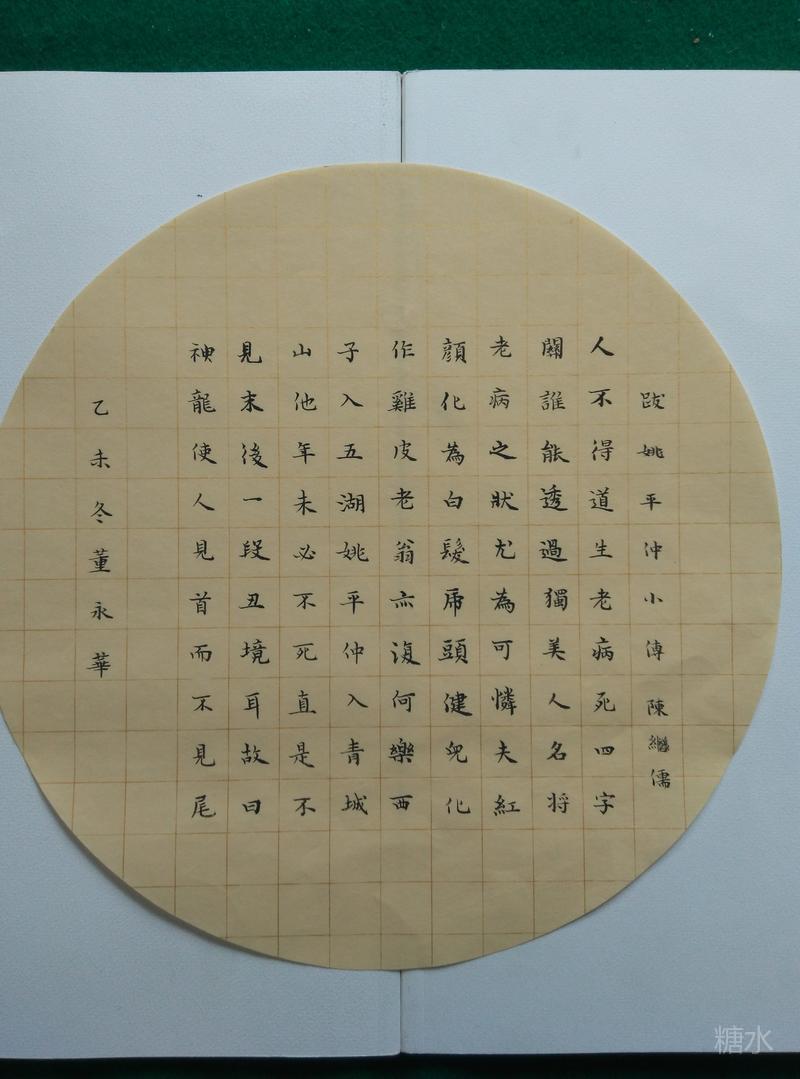 跋姚平沖小傳陳繼儒
人不得道生老病死四字
關誰能透過獨美人名将
老病之狀尤為可憐夫紅
顔化為白髮虎頭健兒化
作雞皮老翁亦復何樂西
子入五湖姚平仲入青城
山他年未必不死直是不
見末後一段丑境耳故曰
神龍使人見首而不見尾
乙未冬董永華
糖水